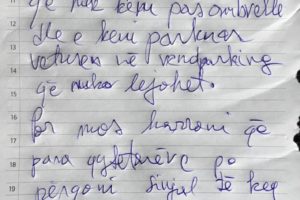 që nuk keni pas ombrellë
dhe e keni parkuar
veturen në vendparking
që nuk lejohet.
Por mos harroni që
para qytetarëve po
përqoni sinjal të keq